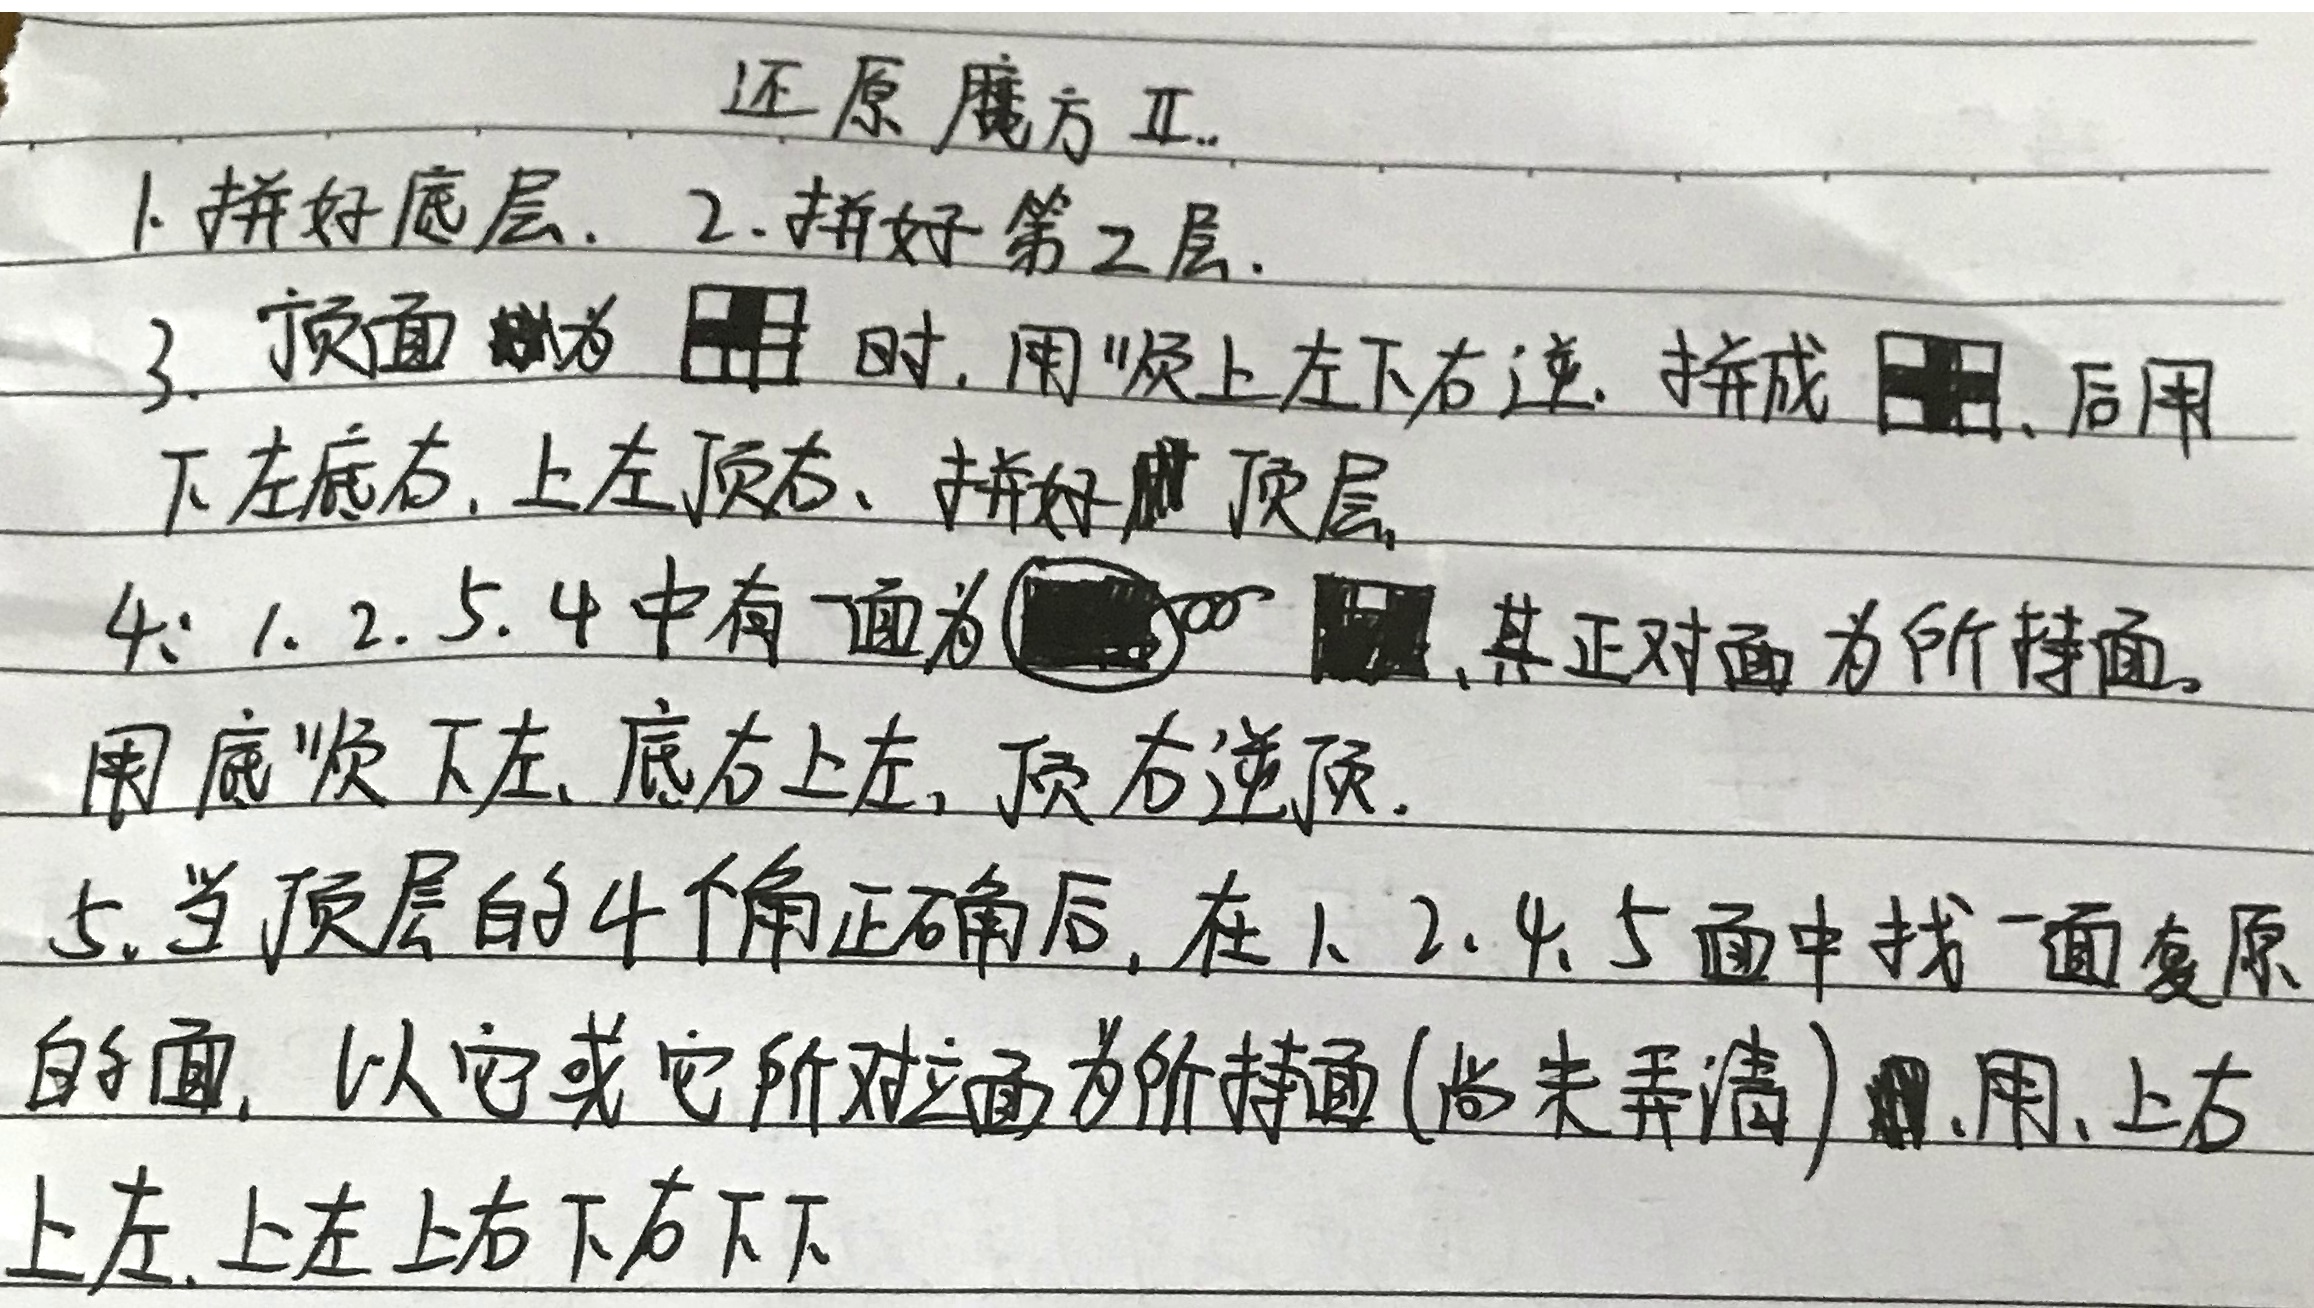 还原魔方 II..
1. 拼好底层. 2. 拼好第2层.
3. 顶面为 时, 用顺上左下右逆. 拼成 、后用
下左底右, 上左顶右、拼好顶层,
4: 1. 2. 5. 4 中有一面为 、其正对面为所持面。
用底顺下左、底右上左, 顶右逆顶.
5. 当顶层的4个角正确后, 在1、2、4、5面中找一面复原
的面, 以它或它所对立面为所持面(尚未弄清) 、用、上右
上左、上左上右下右下下